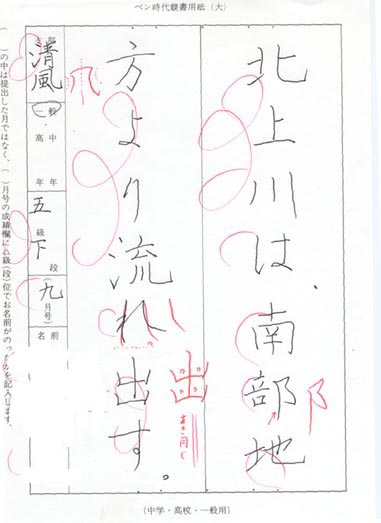 ペン時代競書用紙（大）
北上川は、南部地
方より流れ出す。
清風
一般・高・中
年 年
五級
下段
（九月号）
名前
（ ）の中は提出した月ではなく、（ ）月号の成績欄に△級（段）位でお名前がのったかを記入します。
出
（中学・高校・一般用）